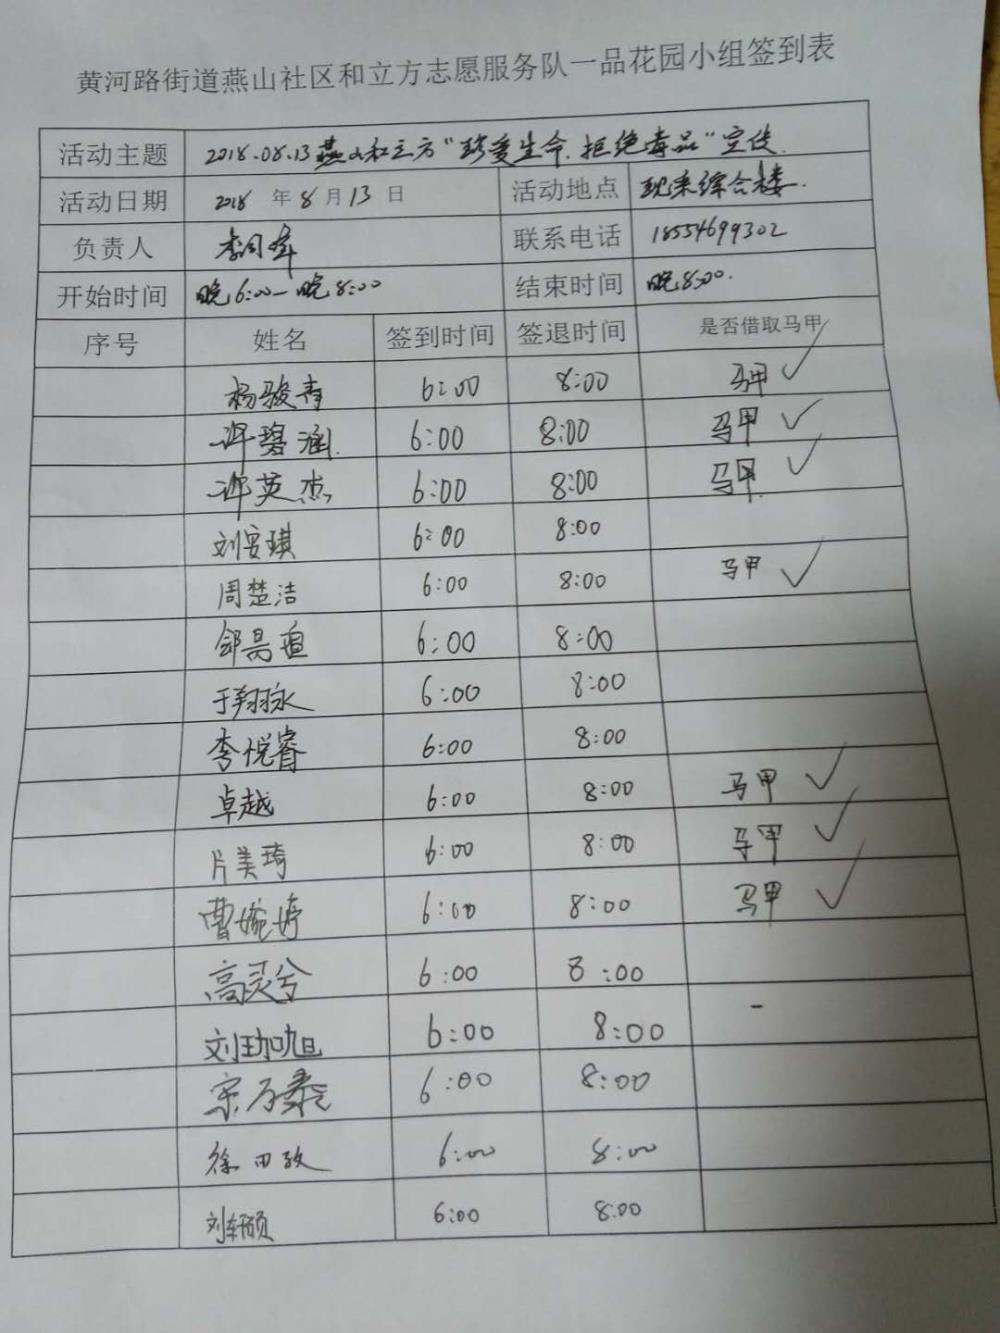 黄河路街道燕山社区和立方志愿服务队一品花园小组签到表
活动主题 2018.08.13燕山和立方"珍爱生命.拒绝毒品"宣传.
活动日期 2018 年 8 月 13 日 活动地点 现来综合楼.
负责人 李同军 联系电话 18554699302
开始时间 晚6:00—晚8:00 结束时间 晚8:00.
序号 姓名 签到时间 签退时间 是否借取马甲
杨骏青 6:00 8:00 马甲 ✓
许碧涵. 6:00 8:00 马甲 ✓
许英杰 6:00 8:00 马甲. ✓
刘安琪 6:00 8:00
周楚洁 6:00 8:00 马甲 ✓
邹昺瑄 6:00 8:00
于翔泳 6:00 8:00
李悦睿 6:00 8:00
卓越 6:00 8:00 马甲 ✓
片美琦 6:00 8:00 马甲 ✓
曹婉婷 6:00 8:00 马甲 ✓
高灵兮 6:00 8:00
刘珈旭 6:00 8:00 -
宋万泰 6:00 8:00
徐田政 6:00 8:00
刘轩硕 6:00 8:00